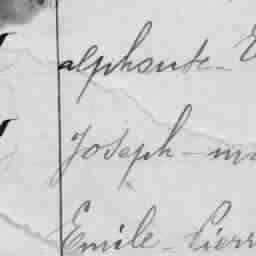 alphonse - E
Joseph - ma
Emile - Pierr